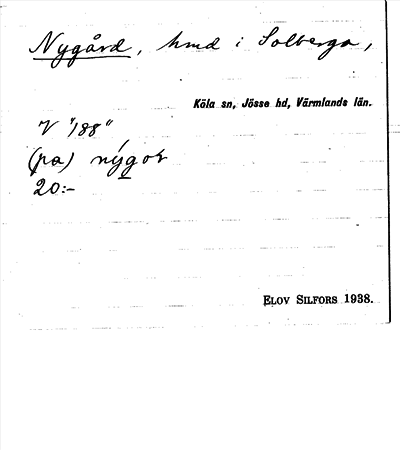 Nygård, hmd i Solberga,
Köla sn, Jösse hd, Värmlands län.
V "/88"
(pa) nýgoṙ
20:-
ELOV SILFORS 1938.